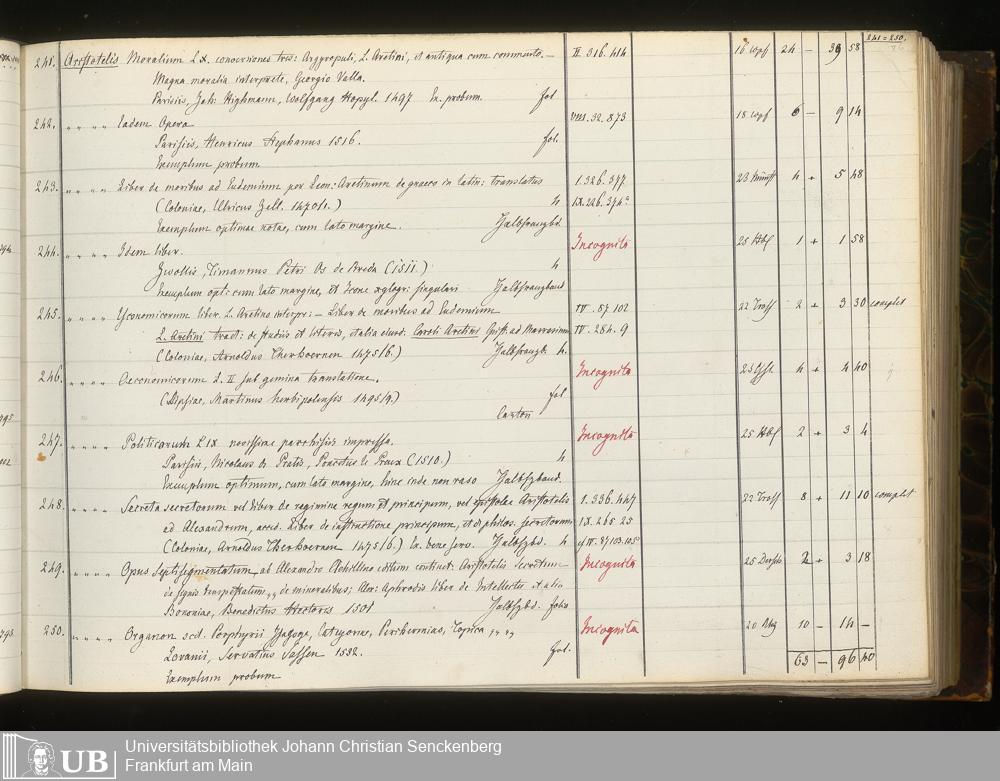 241=250.
241. Aristotelis Moralium L X. conversiones tres: Argyropuli, L. Aretini, et antiqua cum commento. — II. 316. 414 16 24 — 39 58
Magna moralia interprete, Georgio Valla.
Parisiis, Joh: Highmann, Wolfgang Hopyl. 1497 Ex. probum. fol
242. " " " " Eadem Opera VIII. 32. 873 18 6 — 9 14
Parisiis, Henricus Stephanus 1516. fol.
Exemplum probum
243. " " " " Liber de moribus ad Eudemium per Leon: Aretinum de graeco in latin: translatus 1. 326. 377 23 4 + 5 48
(Coloniae, Ulricus Zell. 1470/1.) 4 IX. 226. 374c
Exemplum optimae notae, cum lato margine. Halbfranzbd.
244. " " " " Idem liber. Incognita 25 1 + 1 58
Zwollis, Timannus Petri Os de Breda (1511.) 4
Exemplum opt: cum lato margine, et Icone xylogr: singulari Halbfranzband
245. " " " " Yconomicorum liber. L. Aretino interpr: — Liber de moribus ad Eudemium IV. 87. 102 22 Traff 2 + 3 30 complet
L. Aretini tract: de studiis et literis, et alia eiusd. Caroli Aretini Epist. ad IV. 284. 9
(Coloniae, Arnoldus Therhoernen 1475/6.) Halbfranzb. 4.
246. " " " " Oeconomicorum L. II sub gemina translatione. Incognita 25 4 + 4 40
(Lipsiae, Martinus herbipolensis 1495/9.) fol
Carton
247. " " " " Politicorum L IX novissime parrhisiis impressa. Incognita 25 2 + 3 4
Parisiis, Nicolaus de Pratis, Poncetus le Preux (1510.) 4
Exemplum optimum, cum lato margine, hinc inde non raso Halbfzband.
248. " " " " Secreta secretorum vel liber de regimine regum et principum, vel epistolae Aristotelis 1. 336. 447 22 Traff 8 + 11 10 complet
ad Alexandrum, acced. Liber de instructione principum, et de philos. secretorum IX. 265 25
(Coloniae, Arnoldus Therhoernen 1475/6.) Ex. bene serv. Halbfzbd. 4 cf IV. 87 103. 105
249. " " " " Opus septisegmentatum, ab Alexandro Achillino editum continet: Aristotelis secretum Incognita 25 2 + 3 18
de signis tempestatum, " de mineralibus; Alex: Aphrodis liber de Intellectu et alia
Bononiae, Benedictus Hectoris 1501 Halbfzbd. folio
250. " " " " Organon scil. Porphyrii Ysagoge, Categoriae, Perihermias, Topica Incognita 20 10 — 14 —
Lovanii, Servatius Sassen 1532. fol. 63 — 96 40
Exemplum probum
UB Universitätsbibliothek Johann Christian Senckenberg
Frankfurt am Main